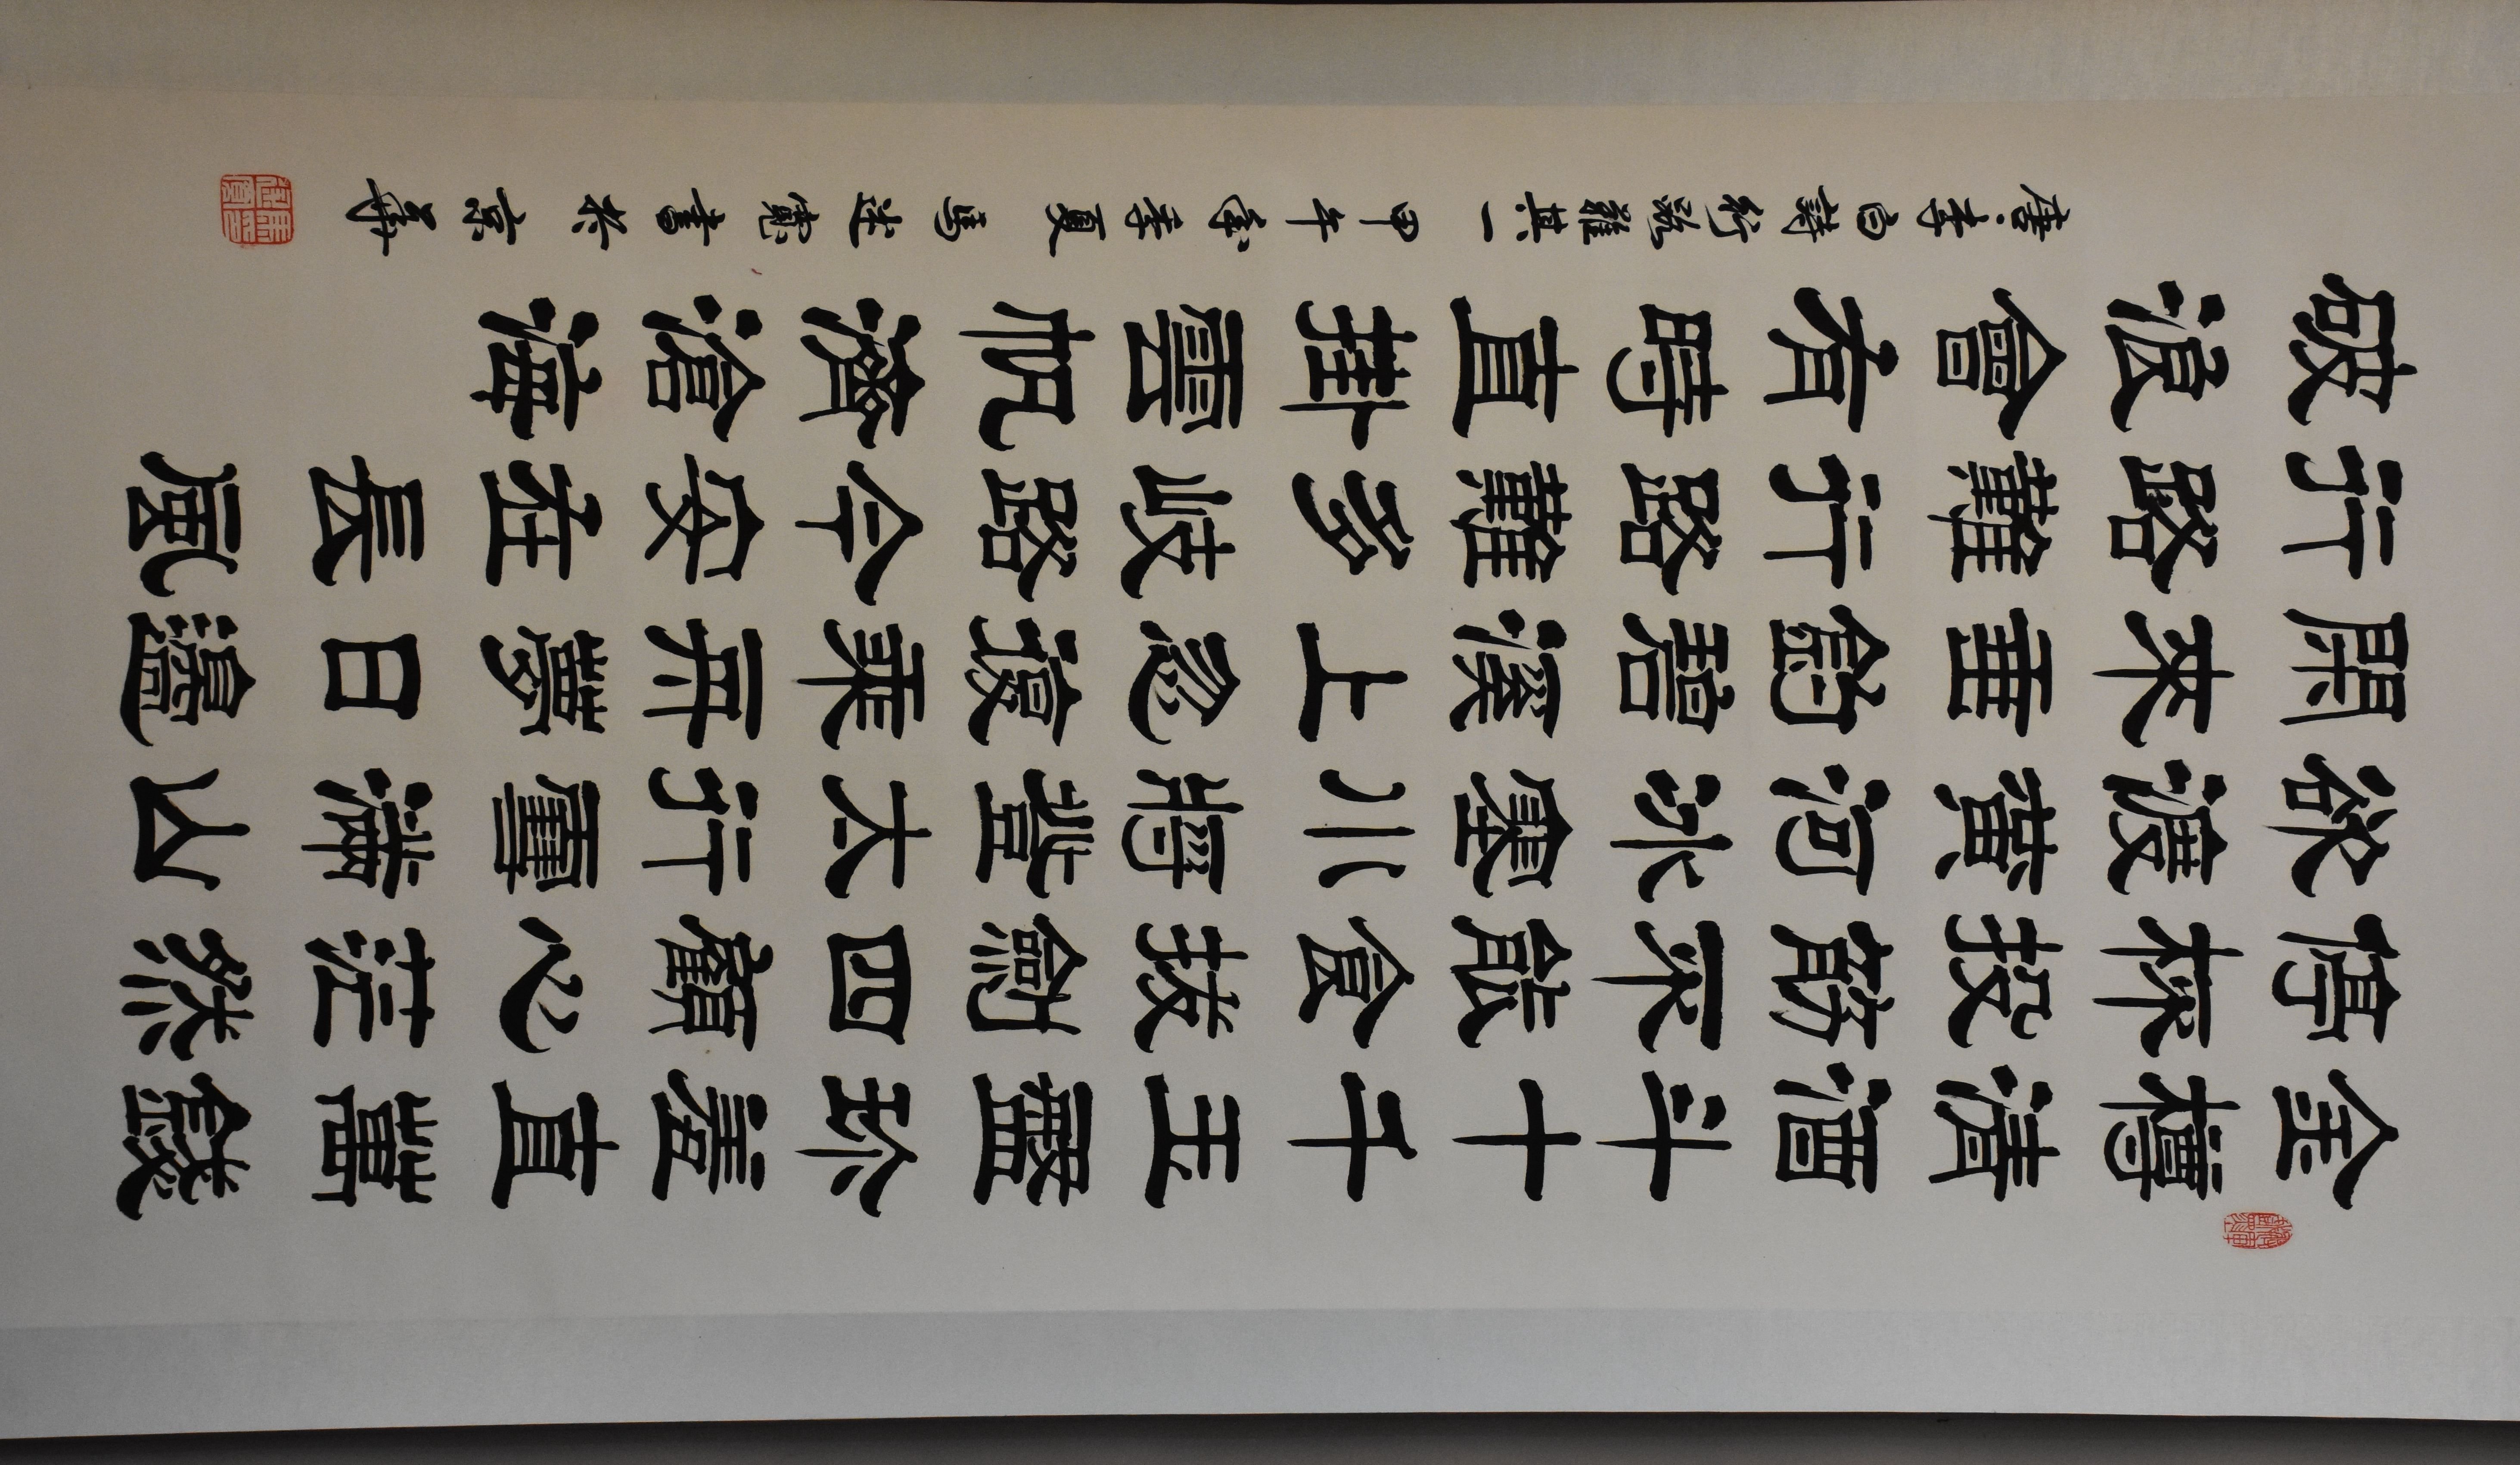 金樽清酒斗十千玉盤珍羞直萬錢
停杯投筯不能食拔劍四顧心茫然
欲渡黃河冰塞川將登太行雪滿山
閑來垂釣碧溪上忽復乘舟夢日邊
行路難行路難多歧路今安在長風
破浪會有時直挂雲帆濟滄海
唐李白詩行路難其一甲午年季夏馬寬書於京華